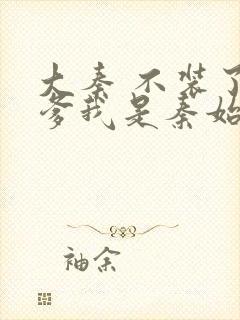 大秦 不装了
爹我是秦始
袖余